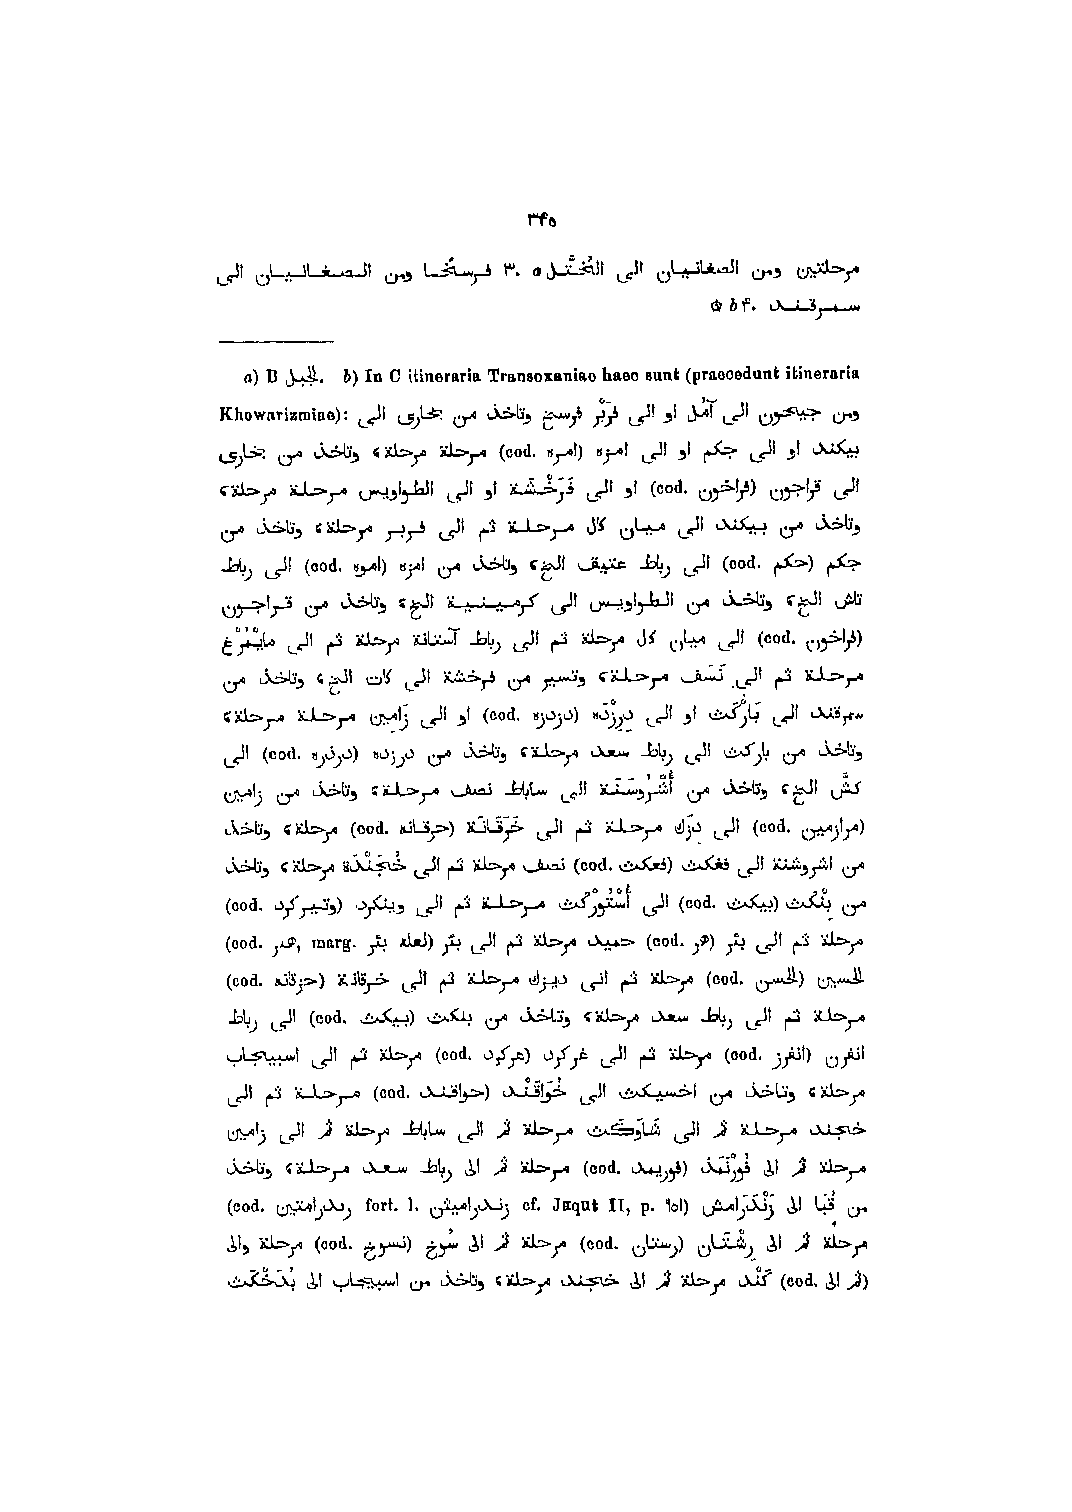 ٣٤٥
مرحلتين ومن الصغانيان الى الخُتَّل a ٣٠ فرسخًا ومن الصغانيان الى
سمرقند ٤٠ b ۞
a) B الجبل. b) In C itineraria Transoxaniae haec sunt (praecedunt itineraria
Khowarizmiae): ومن جيحون الى آمُل او الى فَرَبْر فرسخ وتاخذ من بخارى الى
بيكند او الى جكم او الى امزه (امره .cod) مرحلة مرحلة، وتاخذ من بخارى
الى قراجون (فراخون .cod) او الى فَرَخْشَة او الى الطواويس مرحلة مرحلة،
وتاخذ من بيكند الى ميان كال مرحلة ثم الى فربر مرحلة، وتاخذ من
جكم (حكم .cod) الى رباط عتيق الخ، وتاخذ من امزه (امره .cod) الى رباط
تاش الخ، وتاخذ من الطواويس الى كرمينية الخ، وتاخذ من قراجون
(فراخون .cod) الى ميان كل مرحلة ثم الى رباط آستانة مرحلة ثم الى مايَمُرْغ
مرحلة ثم الى نَسَف مرحلة، وتسير من فرخشة الى كات الخ، وتاخذ من
سمرقند الى بَارْكَث او الى دِرِزْدَه (دزدزه .cod) او الى زَامِين مرحلة مرحلة،
وتاخذ من باركث الى رباط سعد مرحلة، وتاخذ من درزده (درذره .cod) الى
كَشّ الخ، وتاخذ من أُشْرُوسَنَة الى ساباط نصف مرحلة، وتاخذ من زامين
(مرازمين .cod) الى دِزَك مرحلة ثم الى خَرَقَانَة (حرقانه .cod) مرحلة، وتاخذ
من اشروشنة الى فغكث (فعكث .cod) نصف مرحلة ثم الى خُجَنْدَة مرحلة، وتاخذ
من بِنْكَث (بيكث .cod) الى أُسْتُورْكَث مرحلة ثم الى وينكرد (وتيركرد .cod)
مرحلة ثم الى بئر (هر .cod) حميد مرحلة ثم الى بئر (لعله بئر .marg ,هر .cod)
الحسين (الحسن .cod) مرحلة ثم الى ديزك مرحلة ثم الى خرقانة (حزقانه .cod)
مرحلة ثم الى رباط سعد مرحلة، وتاخذ من بنكث (بيكث .cod) الى رباط
انفرن (انفرز .cod) مرحلة ثم الى غركرد (عركرد .cod) مرحلة ثم الى اسبيجاب
مرحلة، وتاخذ من اخسيكث الى خُوَاقَنْد (حواقند .cod) مرحلة ثم الى
خجند مرحلة ثم الى شَاوَكَث مرحلة ثم الى ساباط مرحلة ثم الى زامين
مرحلة ثم الى فُورْنَمَذ (فوريمد .cod) مرحلة ثم الى رباط سعد مرحلة، وتاخذ
من قُبَا الى زَنْدَرَامش (٩٥١ .cf. Jaqut II, p زندراميثن .fort. l ريدرامتين .cod)
مرحلة ثم الى رِشْتَان (رستان .cod) مرحلة ثم الى سُوخ (نسوخ .cod) مرحلة والى
(ثم الى .cod) كَنْد مرحلة ثم الى خجند مرحلة، وتاخذ من اسبيجاب الى بُدَخْكَث